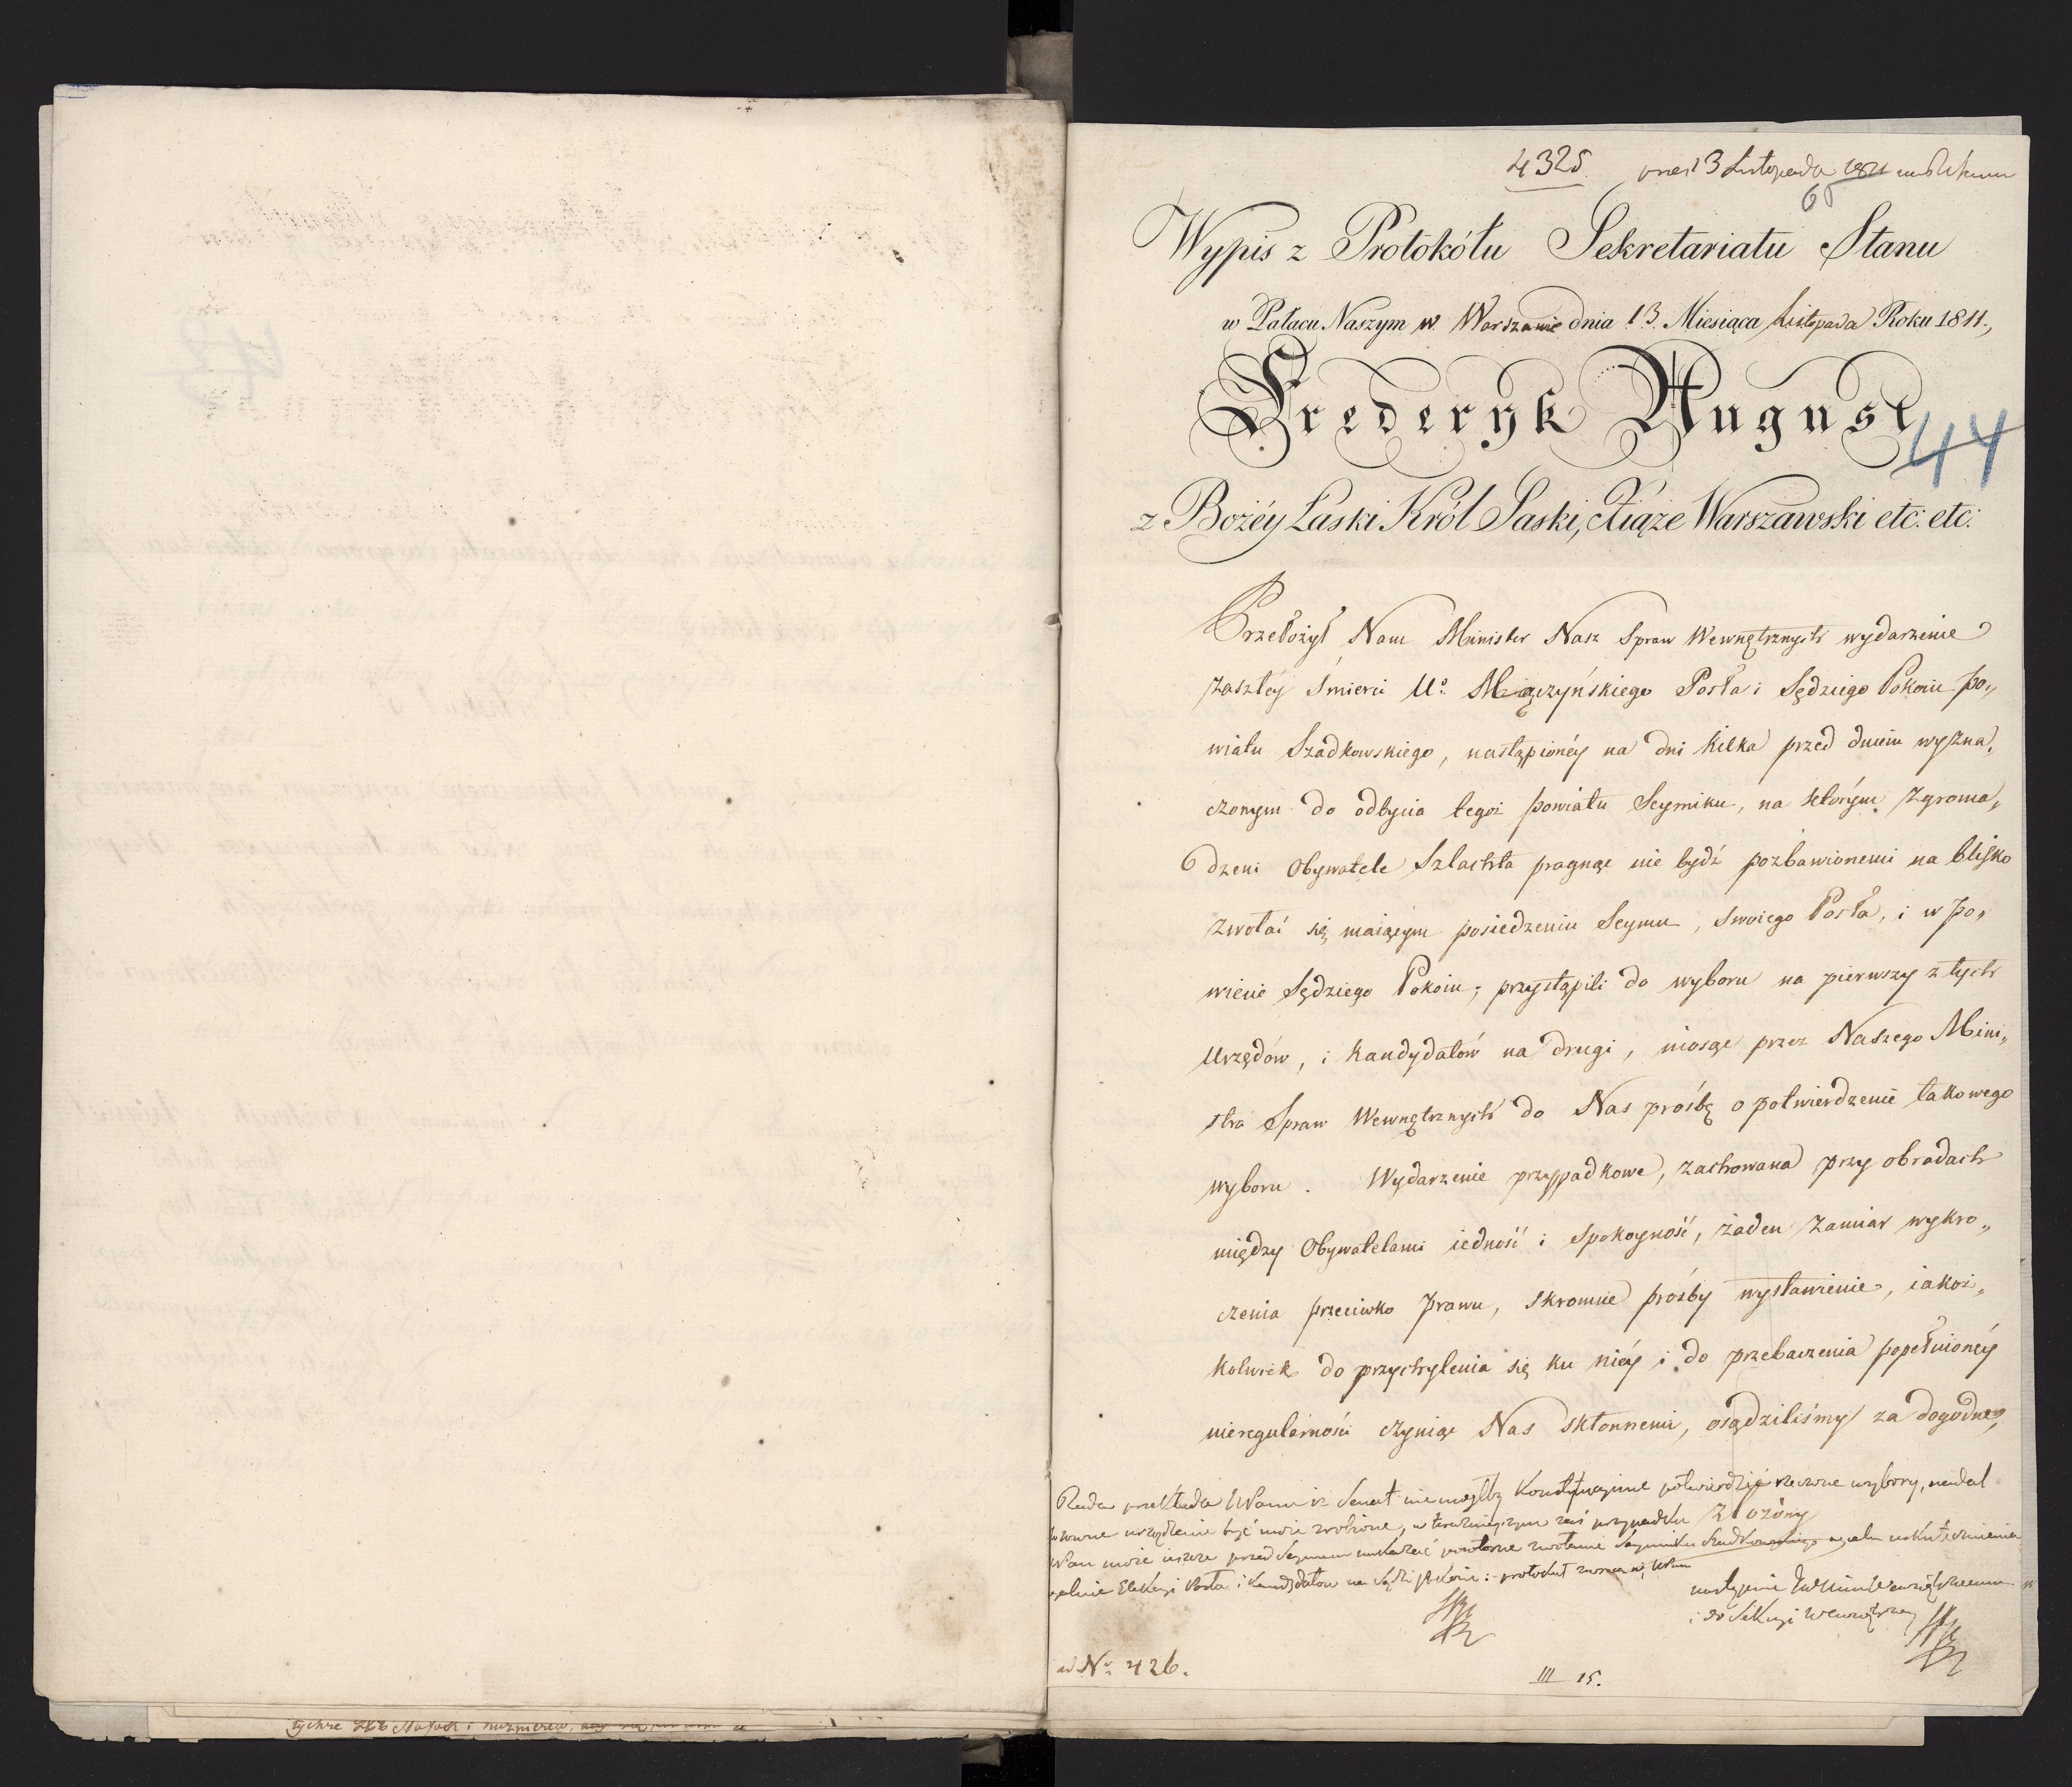 4325. pres 13 Listopada 1811
65
Wypis z Protokółu Sekretariatu Stanu
w Pałacu Naszym w Warszawie dnia 13. Miesiąca Listopada Roku 1811.,
Fryderyk August
44
z Bożéy Łaski Król Saski, Xiąże Warszawski etc: etc:
Przełożył Nam Minister Nasz Spraw Wewnętrznych wydarzenie
zaszłéy Śmierci Uo. Mączyńskiego Posła i Sędziego Pokoiu po„
wiatu Szadkowskiego, nastąpionéy na dni kilka przed dniem wyzna„
czonym do odbycia tegoż powiatu Seymiku, na którym Zgroma„
6 dzeni Obywatele Szlachta pragnąc nie bydź pozbawionemi na blisko
zwołać się maiącym posiedzeniu Seymu, swoiego Posła, i w po„
wiecie Sędziego Pokoiu; przystąpili do wyboru na pierwszy z tych
Urzędów, i kandydatów na drugi, niosąc przez Naszego Mini„
stra Spraw Wewnętrznych do Nas prośbę o potwierdzenie takowego
wyboru. Wydarzenie przypadkowe, zachowana przy obradach
między Obywatelami iedność i spokoyność, żaden zamiar wykro„
czenia przeciwko prawu, skromne prośby wystawienie, iakoż„
kolwiek do przychylenia się ku niéy i do przebaczenia popełnionéy
nieregularności czyniąc Nas skłonnemi, osądziliśmy za dogodne,
Rada przekłada WPanu iż Senat nie mógłby konstytucyinie potwierdzić rzeczone wybory, nadal
urządzenie być może zrobione, w teraźnieyszym zaś przypadku złożony
WPan może ieszcze przed Seymem nakazać powtórne zwołanie Seymiku Szadkowskiego w celu uskutecznienia
Elekcyi Posła i kandydatów na Sędz. Pokoiu: protokuł zwraca się WPanu
i do Sekcyi Wewnętrzney
ad No. 426.
III 15.